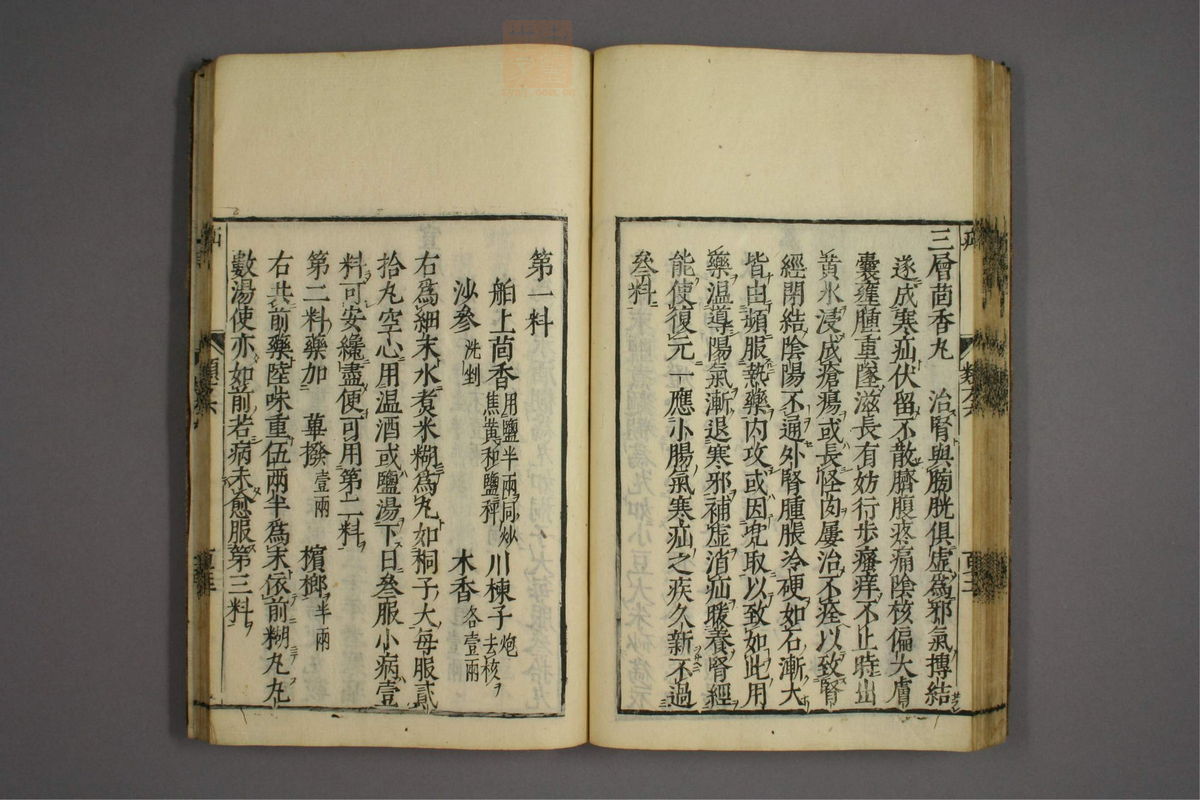 三層茴香丸　治腎與膀胱俱虛爲邪氣搏結
遂成寒疝伏留不散臍腹疼痛陰核偏大膚
囊癰腫重墜滋長有妨行步瘙痒不止時出
黄水浸成瘡瘍或長怪肉屢治不痊以致腎
經閉結陰陽不通外腎腫脹冷硬如石漸大
皆由頻服熱藥内攻或因兠取以致如此用
藥温導陽氣漸退寒邪補虚消疝暖養腎經
能使復元一應小腸氣寒疝之疾久新不過
叄料
第一料
舶上茴香用鹽半兩同炒焦黄和鹽秤　川楝子炮去核
沙參洗剉　木香各壹兩
右爲細末水煮米糊爲丸如桐子大每服貳
拾丸空心用温酒或鹽湯下日叄服小病壹
料可安纔盡便可用第二料
第二料藥加　蓽撥壹兩　檳榔半兩
右共前藥陸味重伍兩半爲末依前糊丸丸
數湯使亦如前若病未愈服第三料